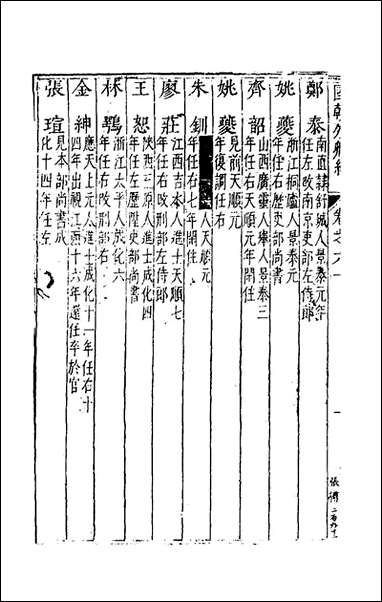 國朝列卿紀
卷之六十一
鄭泰
南直隸舒城人景泰元年
任左改南京吏部左侍郎
姚夔
浙江桐廬人景泰元
年任右歷吏部尚書
齊韶
山西廣靈人舉人景泰三
年任右天順元年閒住
姚夔
見前天順元
年復調任右
朱釧
人天順元
年任右七年閒住
廖莊
江西吉水人進士天順七
年任右改刑部左侍郎
王恕
陝西三原人進士成化四
年任左歷陞吏部尚書
林鶚
浙江太平人成化六
年任右改刑部右
金紳
應天上元人進士成化十一年任右十
四年出視江西十六年還任卒於官
張瑄
見本部尚書成
化十四年任左
一
張樽